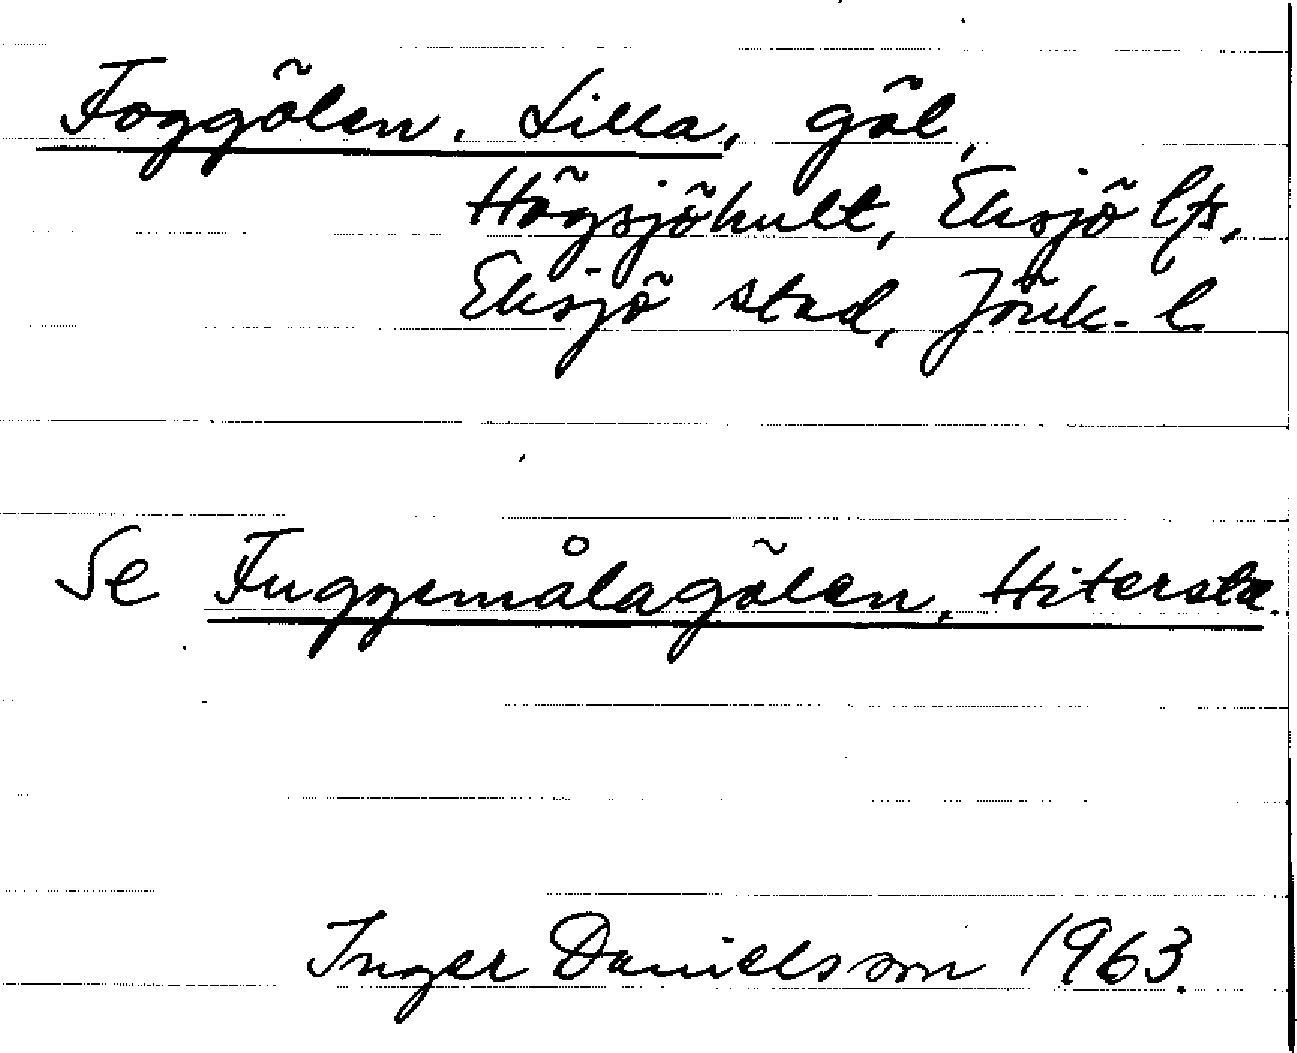 Foggölen, Lilla, göl,
Högsjöhult, Eksjö lfs,
Eksjö stad, Jönk. l.
Se Fuggemålagölen, Hitersta.
Inger Danielsson 1963.